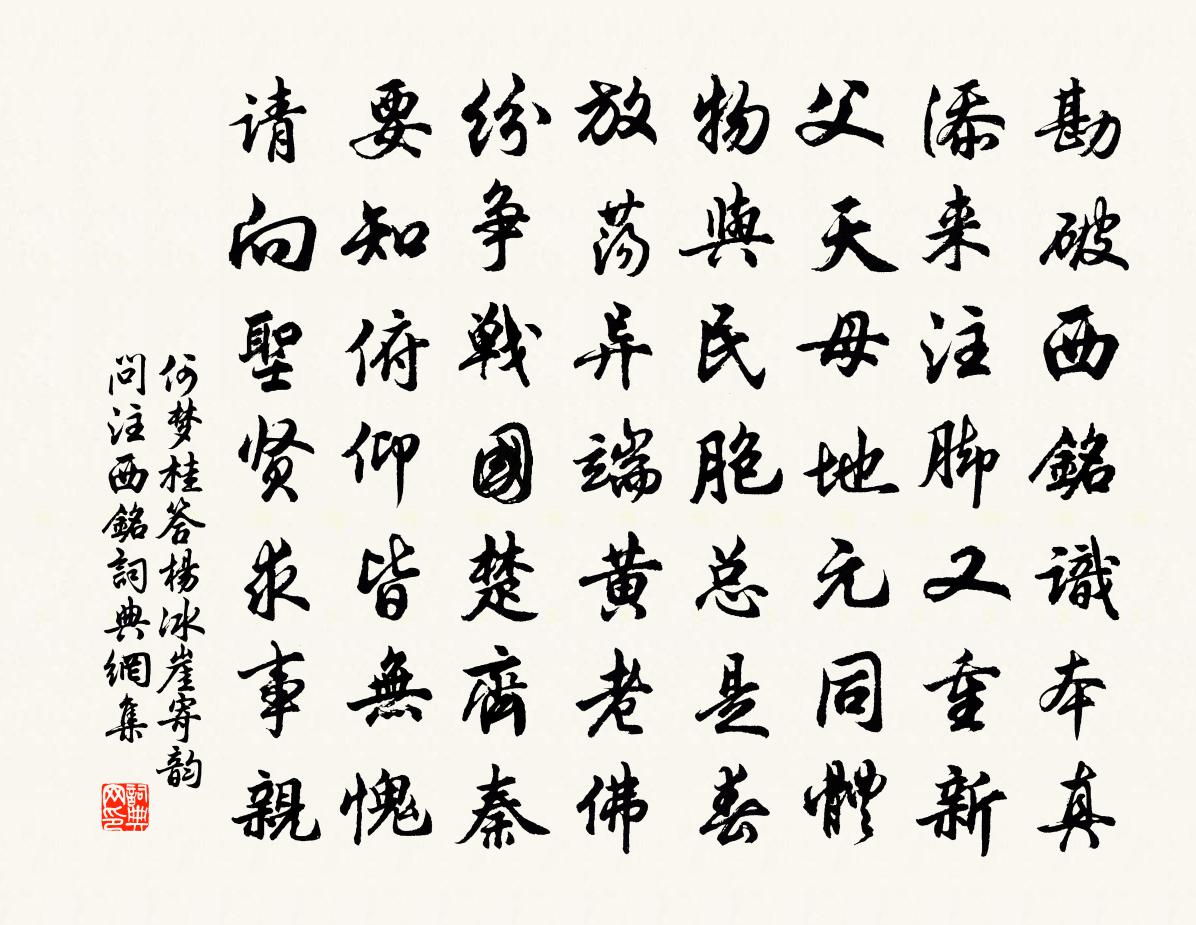 勘破西銘識本真
添来注脚又重新
父天母地元同體
物與民胞总是春
放荡异端黄老佛
纷争戰國楚齊秦
要知俯仰皆無愧
请向聖贤求事親
何梦桂答楊冰崖寄韵
問注西銘詞典網集
詞典网印